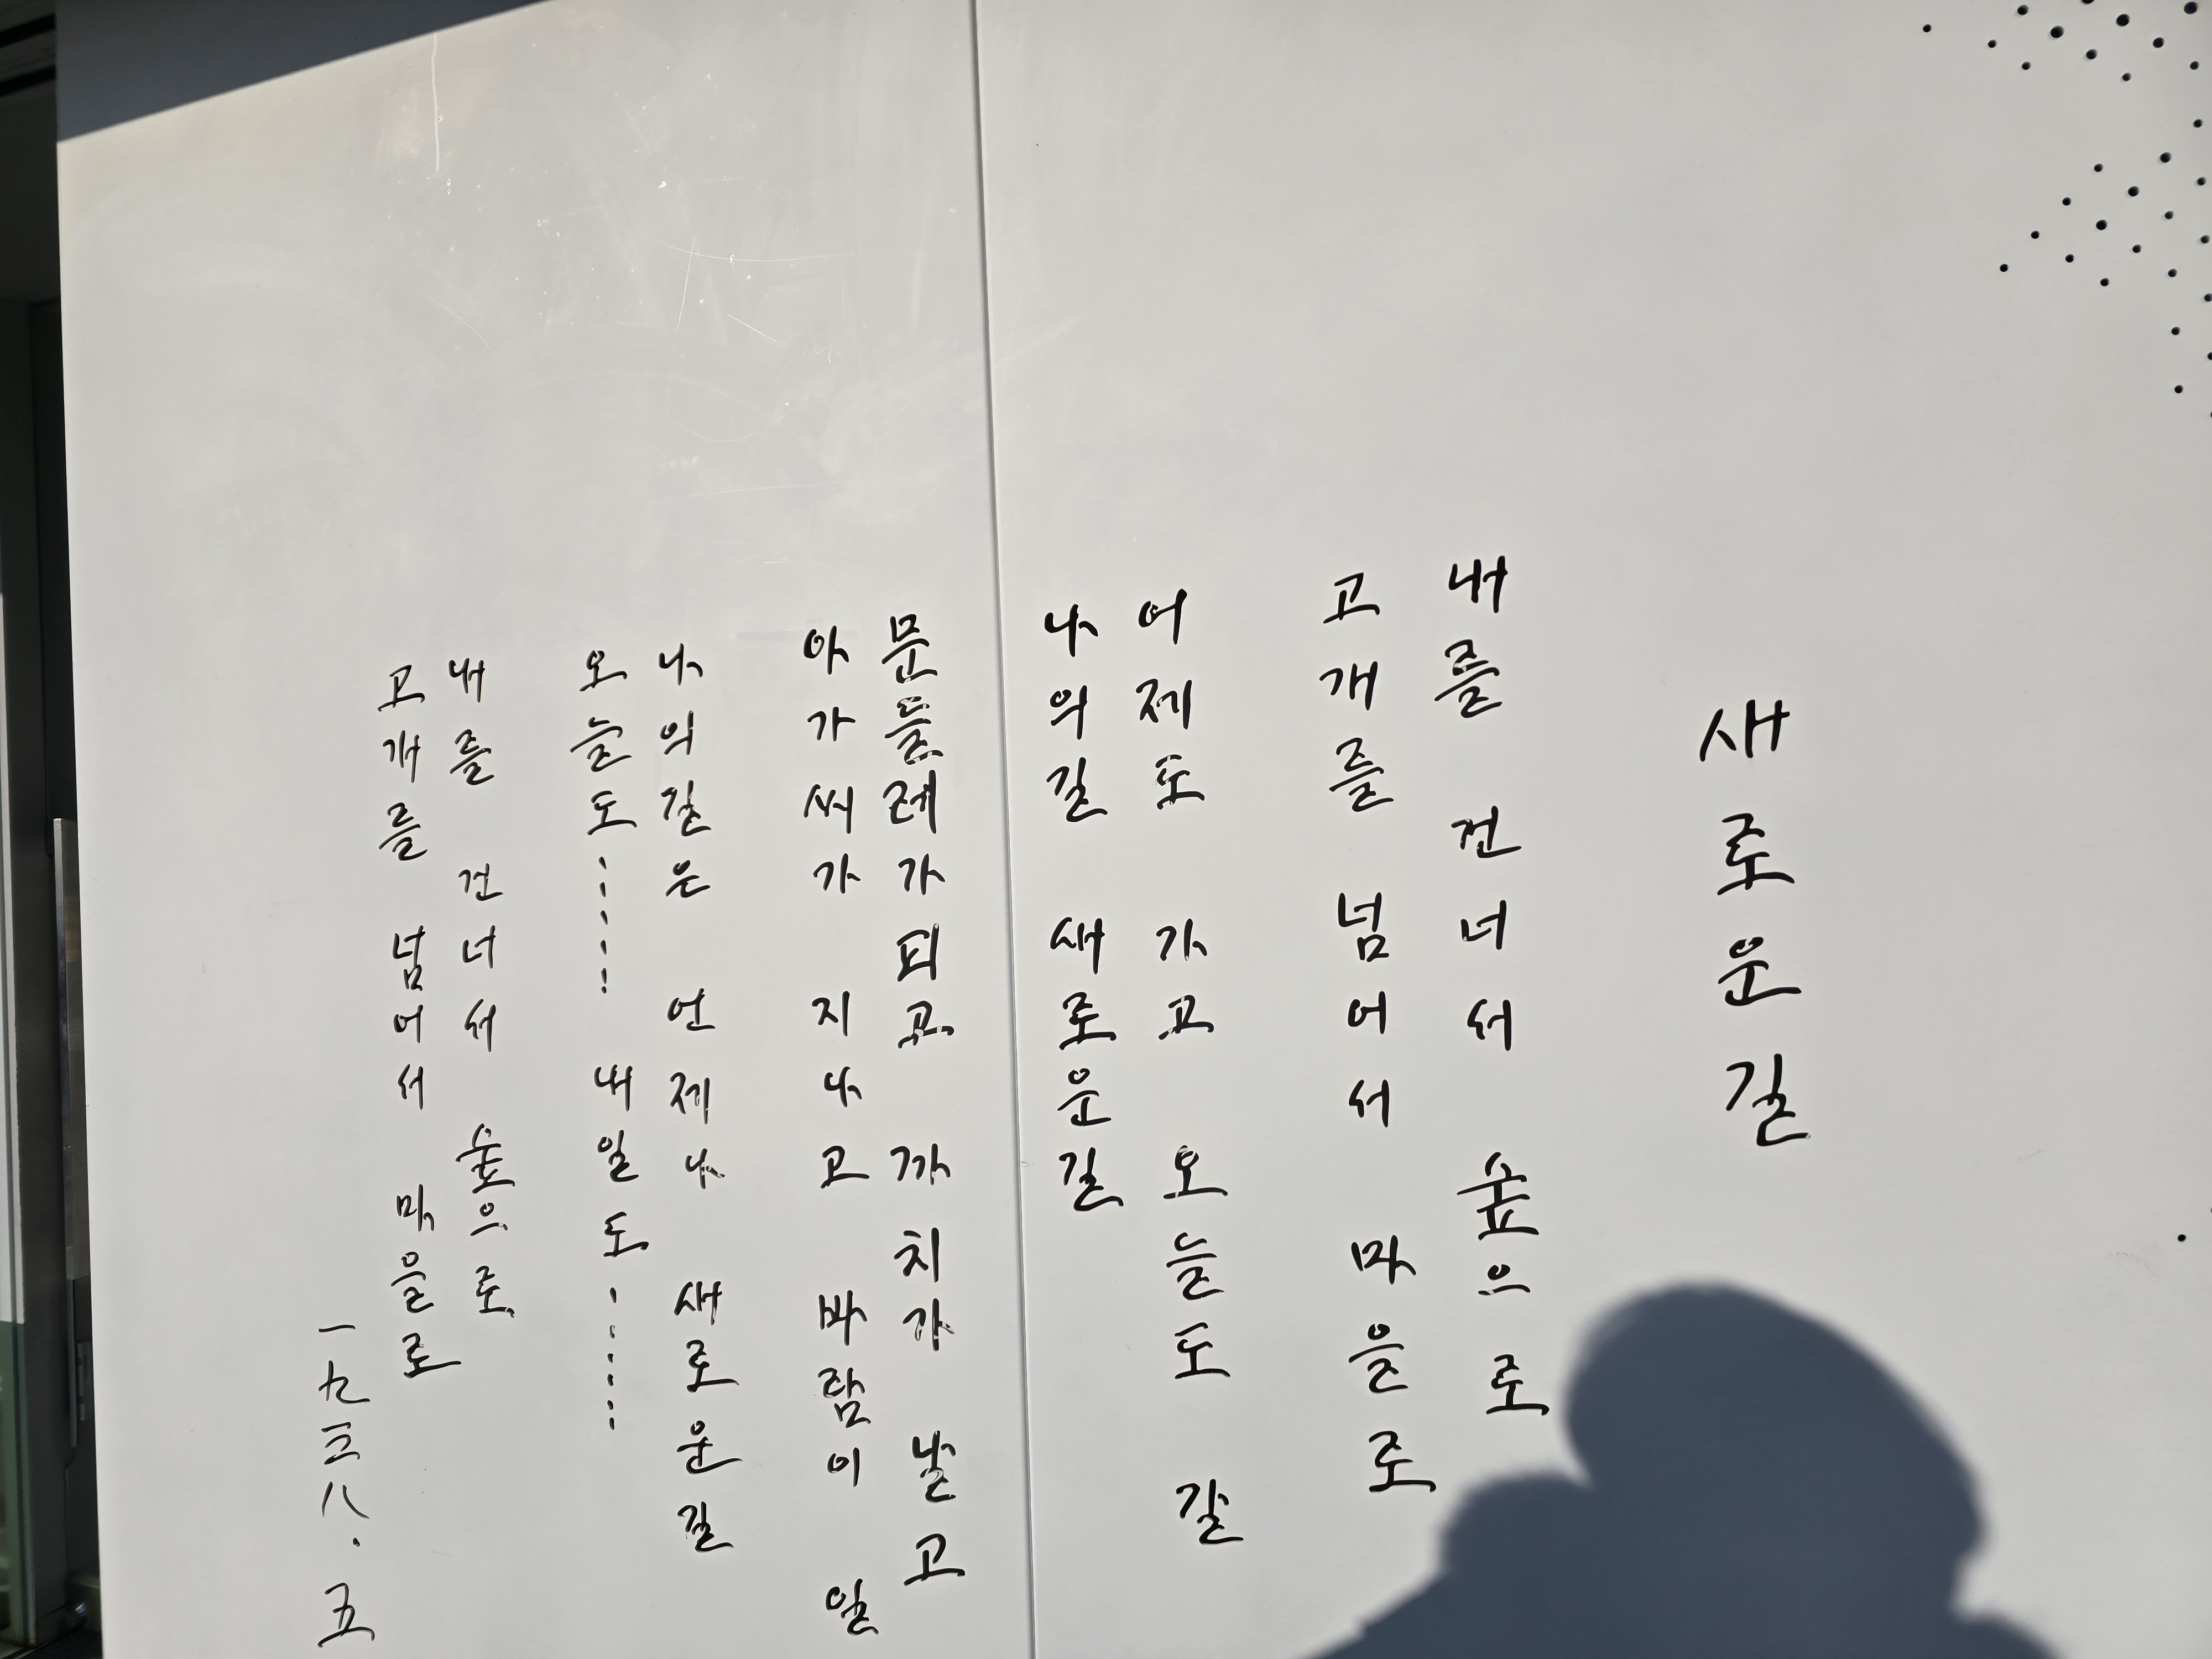 새로운길
내를 건너서 숲으로
고개를 넘어서 마을로
어제도 가고 오늘도 갈
나의길 새로운길
문들레가피고 까치가 날고
아가씨가 지나고 바람이 일
나의길은 언제나 새로운길
오늘도…… 내일도……
내를 건너서 숲으로
고개를 넘어서 마을로
一九三八·五